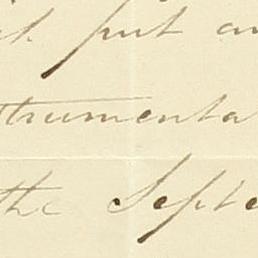 put an
strumenta
the Septe